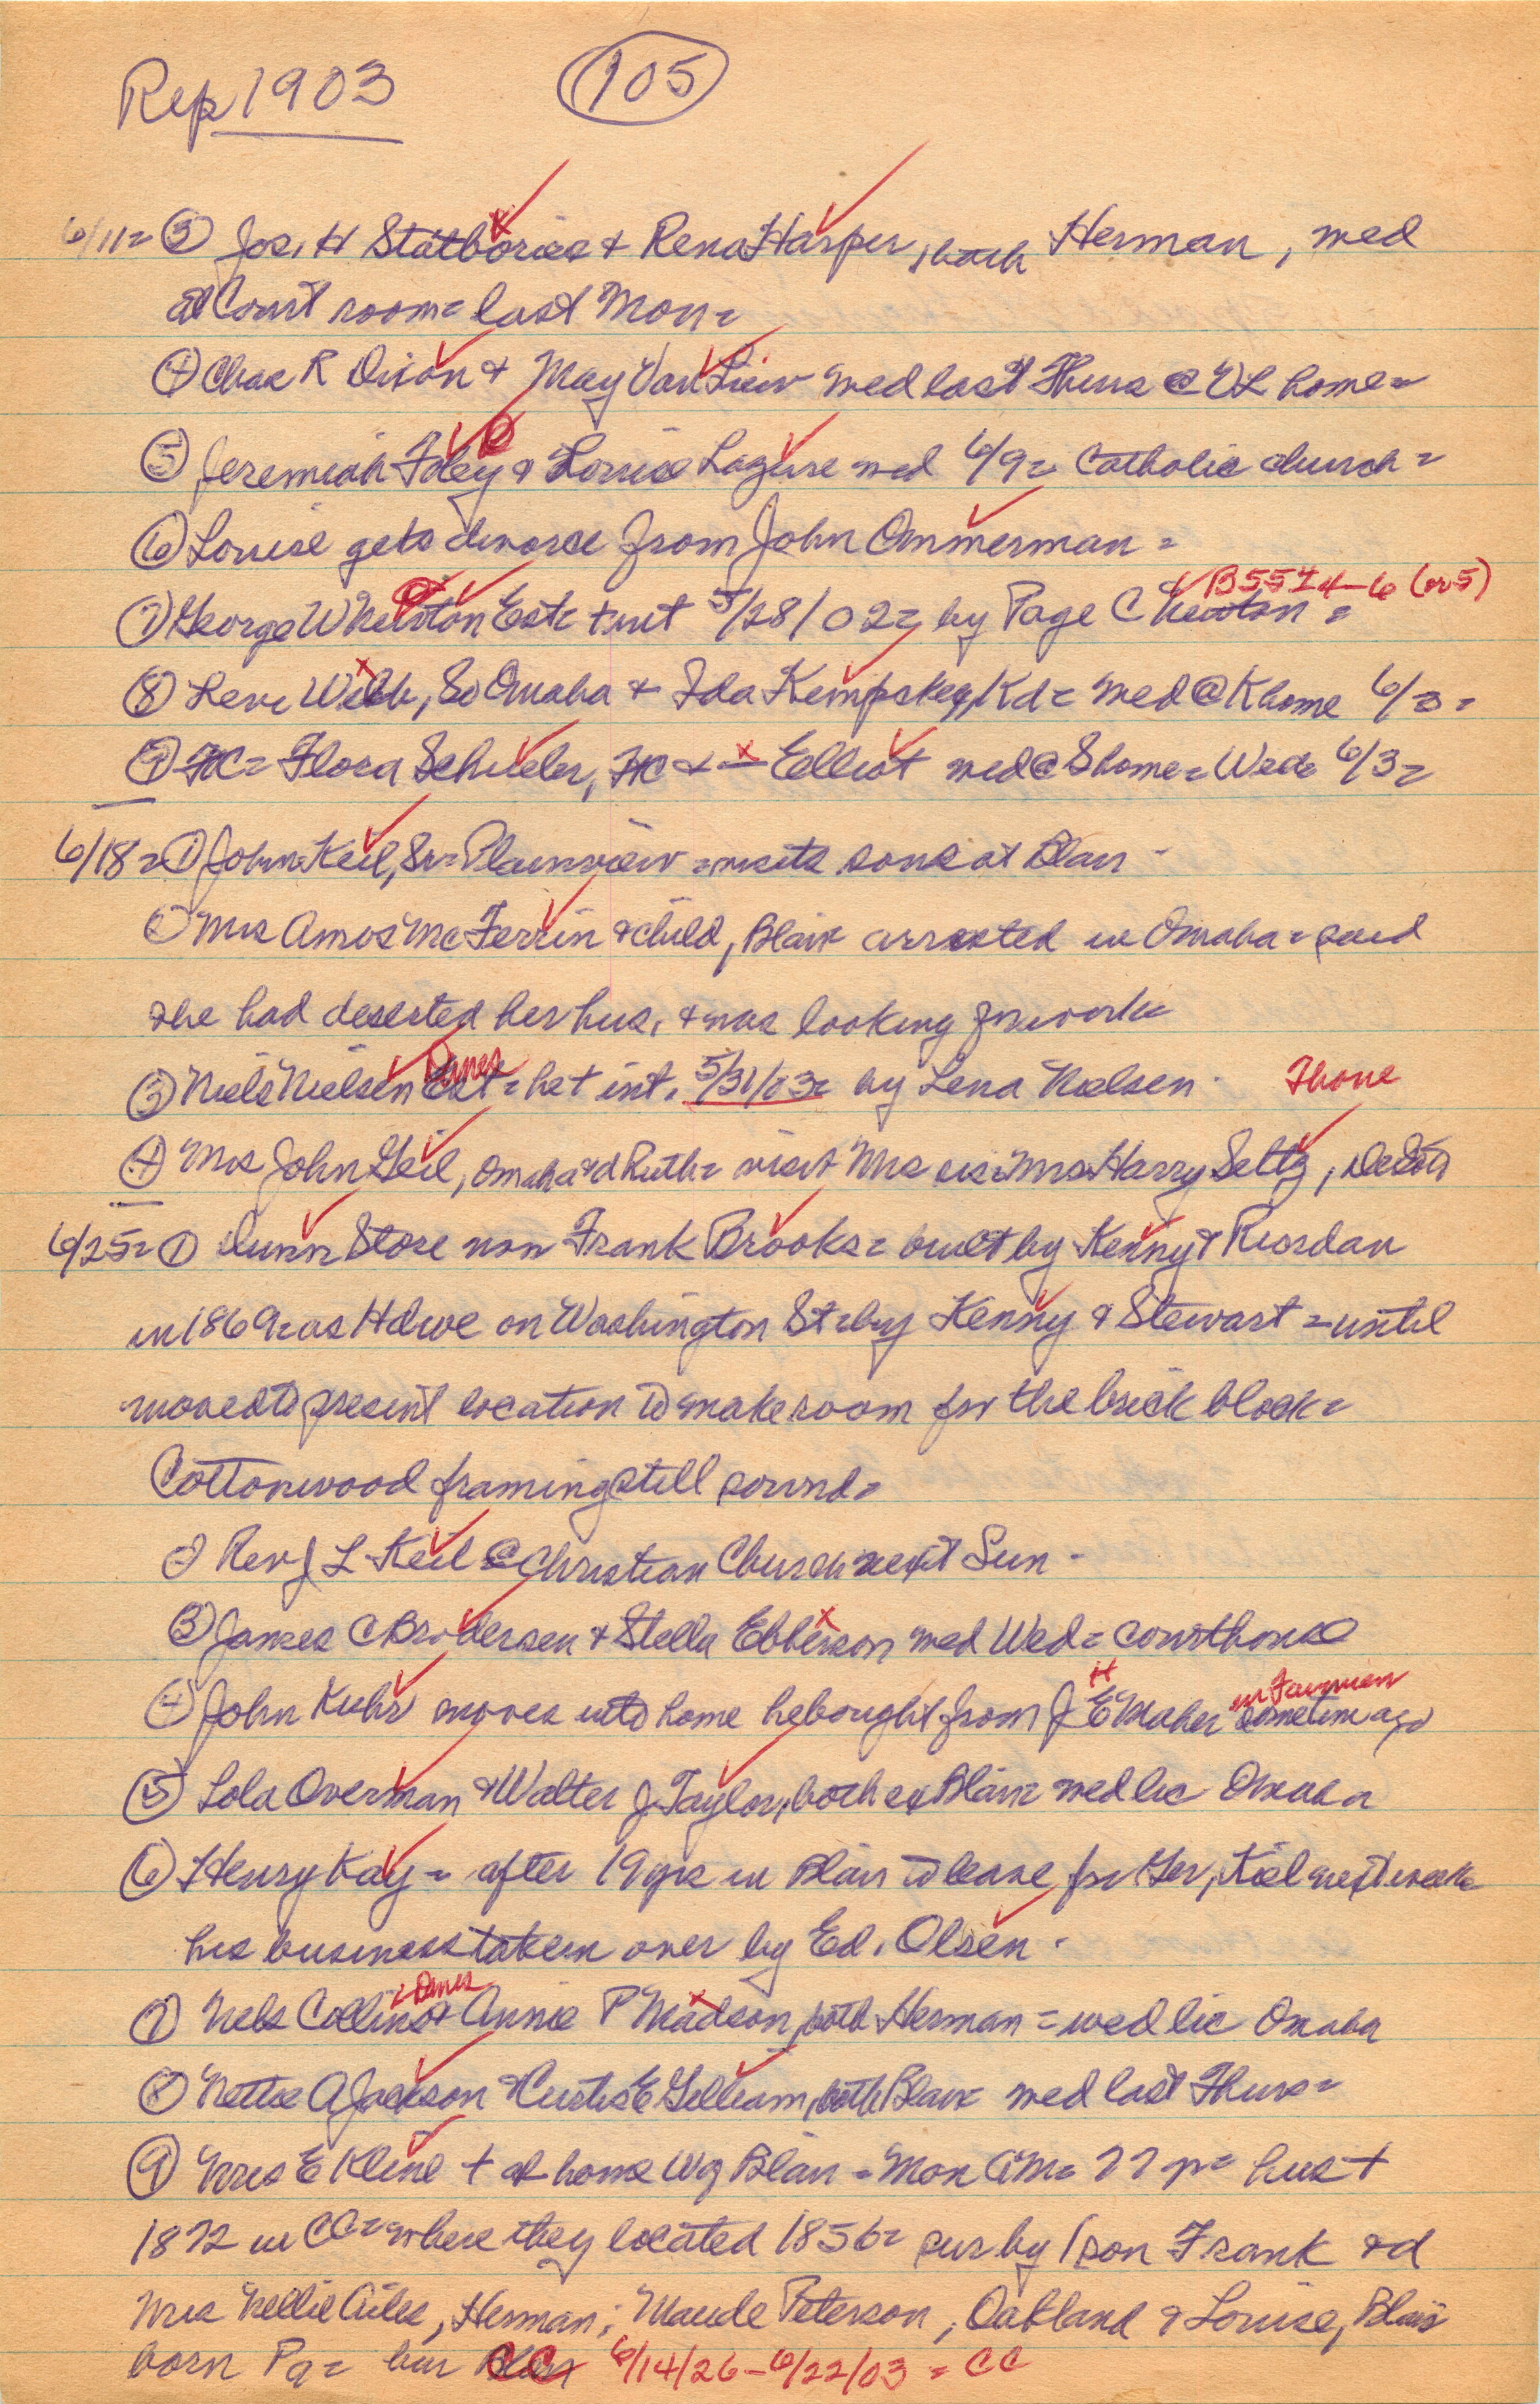 Rep 1903 (105)
6/11= ③ Jos. H & Rena Harper, both Herman, med
at Court room= last Mon=
④ Chas R Dixon & May Van Liew med last Thurs @ VL home=
⑤ Jeremiah Foley & Louise Lazure med 6/9= Catholic church=
⑥ Louise gets divorce from John Ommerman=
B5514-6 (or 5)
⑦ George W Newton Est= + int 5/28/02= by Page C Newton=
⑧ Levi Webb, So Omaha & Ida Kempskey, Kd= med @ K home 6/3=
⑨ FC= Flora Schueler, FC & — Elliot med @ S home= Wed= 6/3=
6/18= ① John Keil, Sr= Plainview= visits sons at Blair-
② Mrs Amos McFerrin & child, Blair arrested in Omaha= said
she had deserted her hus. & was looking for work=
③ Niels Nielsen Est= he + int. 5/31/03= by Lena Nielsen.
④ Mrs John Geil, Omaha & d Ruth= visit Mrs sis= Mrs Harry Seltz, DeSota
6/25= ① Dunn Store now Frank Brooks= built by Kenny & Riordan
in 1869= as Hdwe on Washington St= by Kenny & Stewart= until
moved to present location to make room for the brick block=
Cottonwood framing still sound=
2 Rev J L Keil @ Christian Church next Sun-
③ James C Brodersen & Stella Ebberson med Wed= courthouse
H in Fairview
④ John Kuhr moves into home he bought from J E Maher sometime ago
⑤ Lola Overman & Walter J Taylor, both ex Blair= wed lic Omaha
⑥ Henry Kay= after 19 yrs in Blair to leave for Ger, Kiel next week=
his business taken over by Ed. Olsen.
⑦ Nels Collins & Annie P Madson, both Herman= wed lic Omaha
⑧ Nettie A Jackson & Curtis E Gilliam, both Blair med last Thurs=
⑨ Mrs E Kline + at home W of Blair= Mon AM= 77 y= hus +
1872 in CC= where they located 1856= sur by 1 son Frank & d
Mrs Nellie Ailes, Herman; Maude Peterson, Oakland & Louise, Blair
born Pa= bur CC 6/14/26-6/22/03= CC